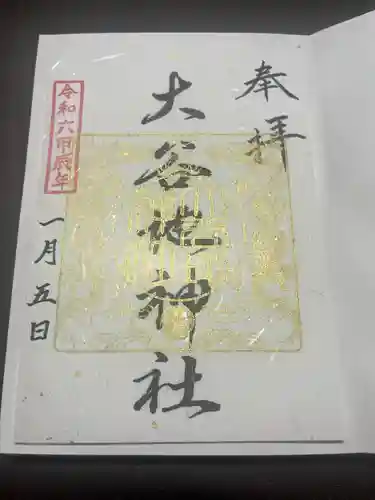 奉拝
大谷地神社
令和六甲辰年
一月五日